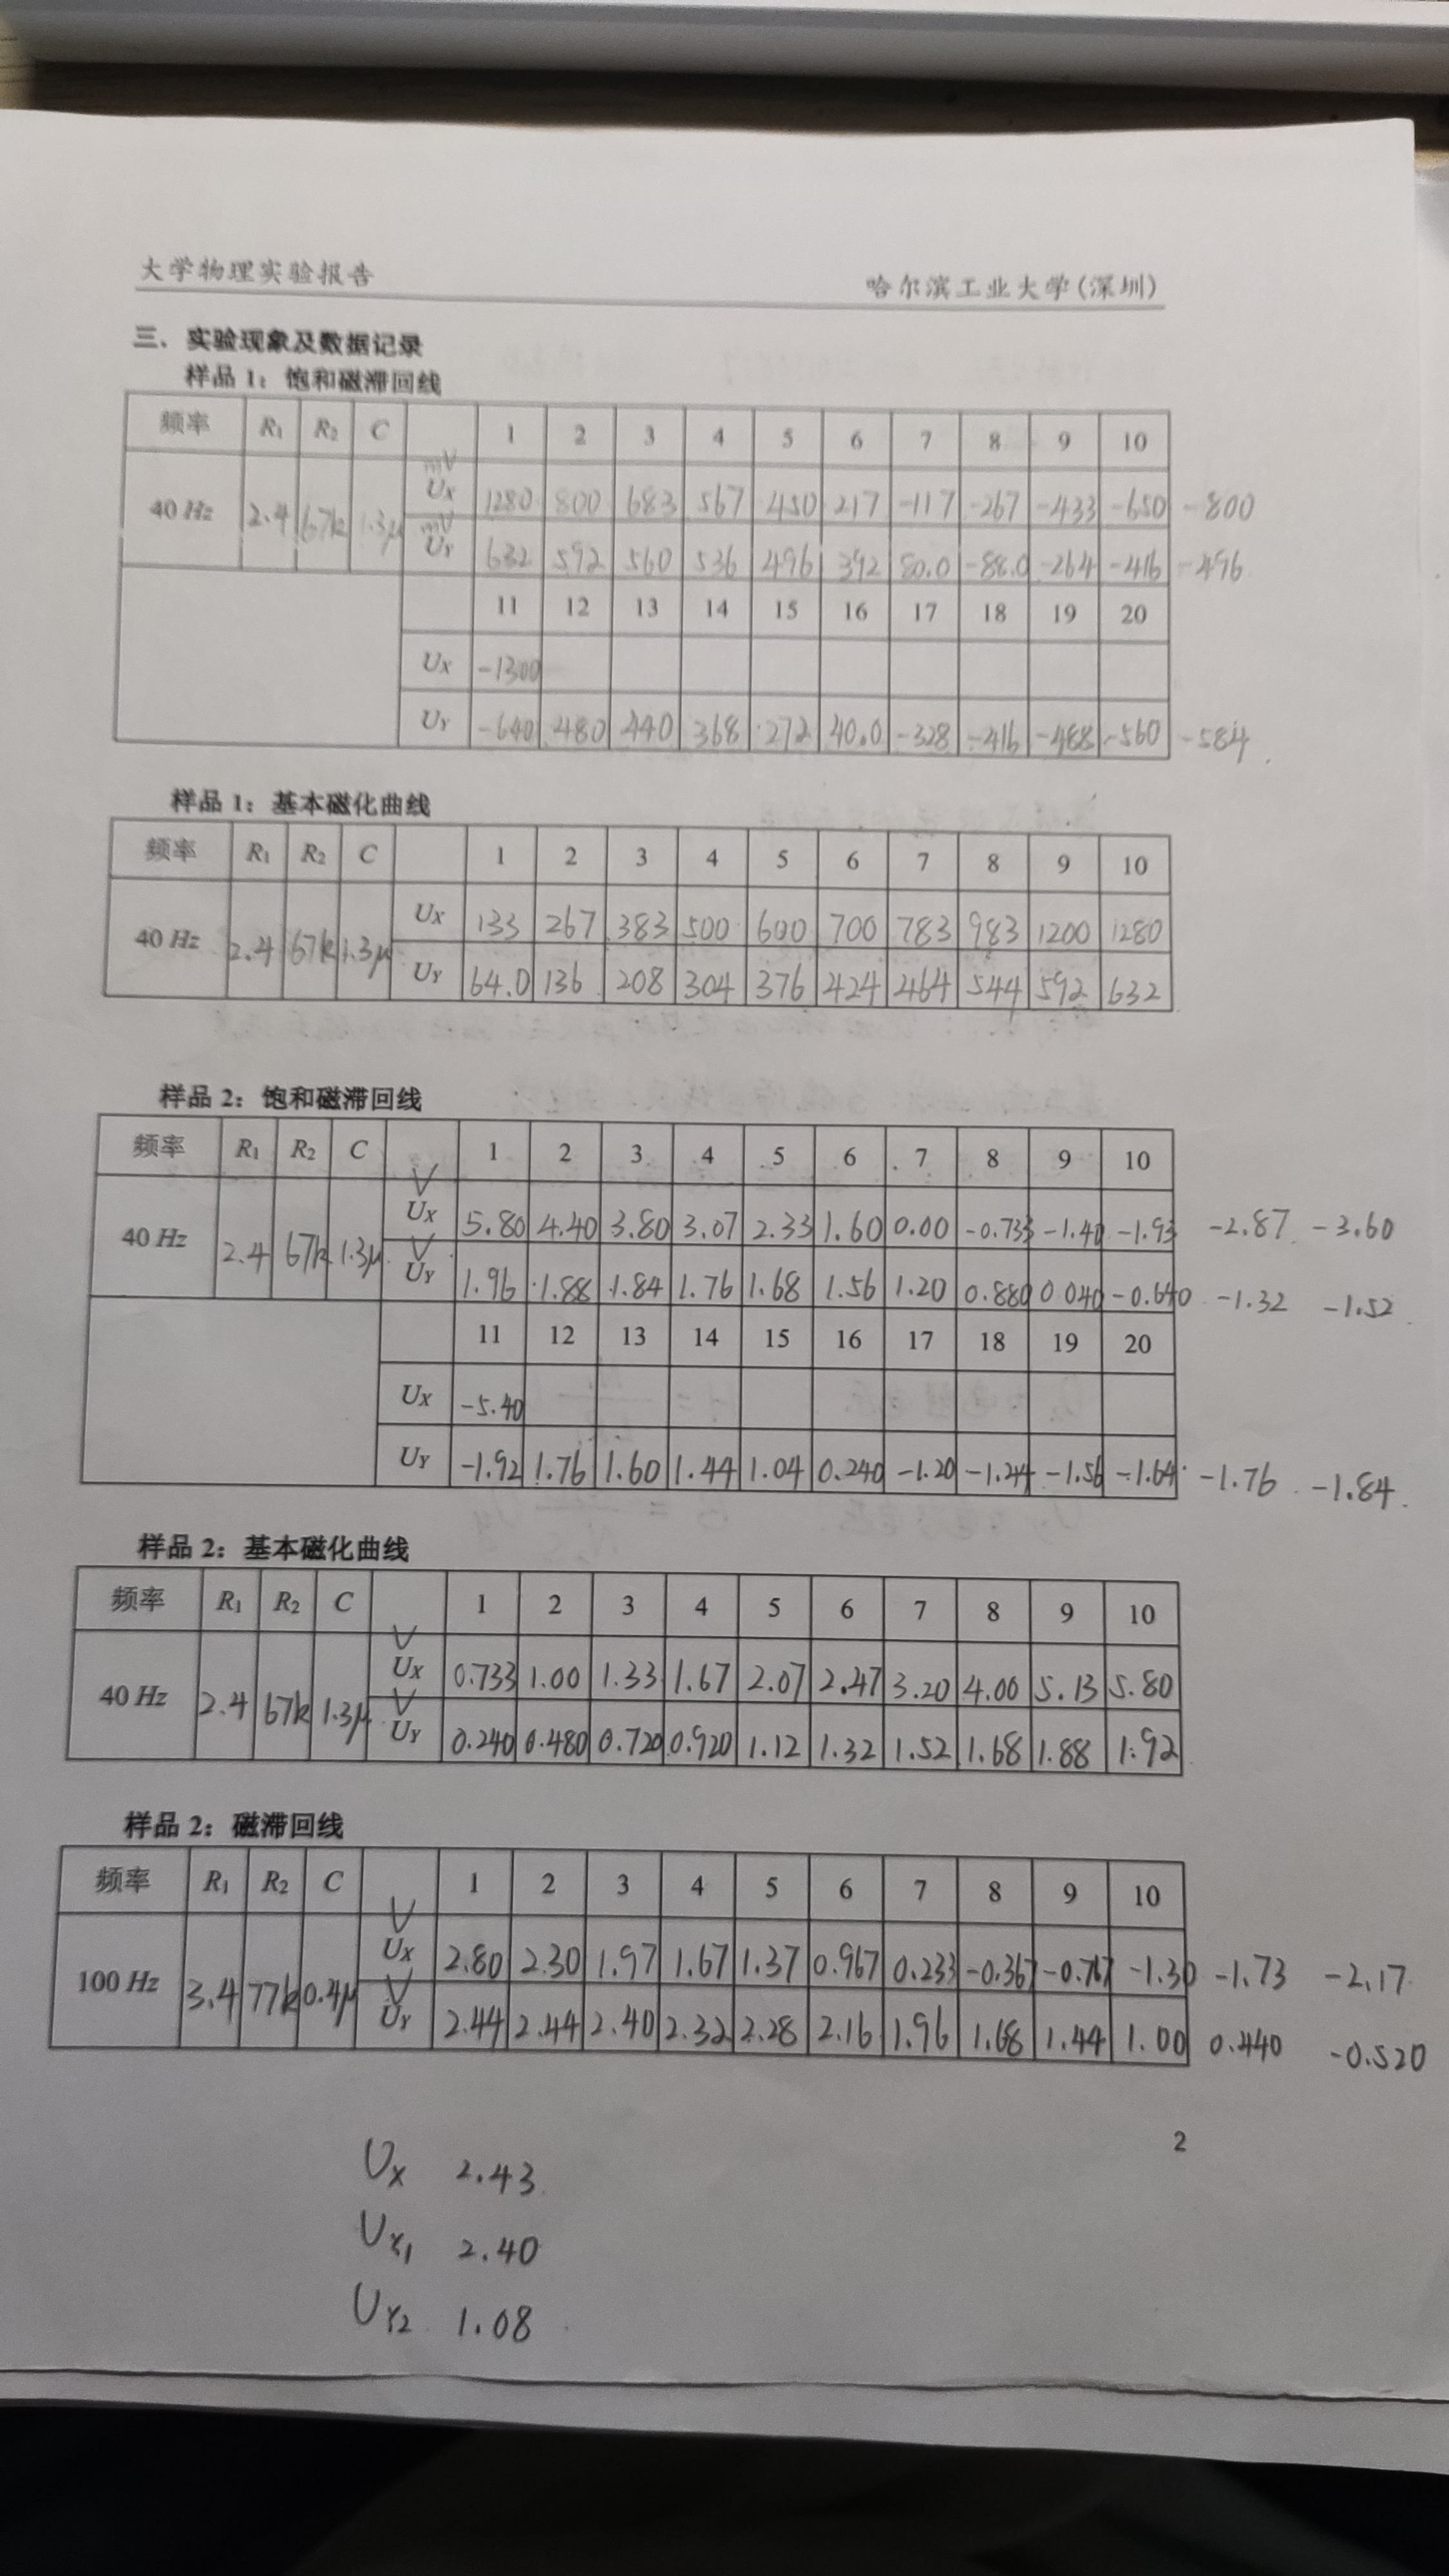 大学物理实验报告 哈尔滨工业大学(深圳)
三、实验现象及数据记录
样品 1：饱和磁滞回线
频率 R1 R2 C 1 2 3 4 5 6 7 8 9 10
40 Hz 2.4 67k 1.3μ mV UX 1280 800 683 567 450 217 -117 -267 -433 -650 -800
mV UY 632 592 560 536 496 392 80.0 -88.0 -264 -416 -496
11 12 13 14 15 16 17 18 19 20
UX -1300
UY -640 480 440 368 272 40.0 -328 -416 -488 -560 -584
样品 1：基本磁化曲线
频率 R1 R2 C 1 2 3 4 5 6 7 8 9 10
40 Hz 2.4 67k 1.3μ UX 133 267 383 500 600 700 783 983 1200 1280
UY 64.0 136 208 304 376 424 464 544 592 632
样品 2：饱和磁滞回线
频率 R1 R2 C 1 2 3 4 5 6 7 8 9 10
40 Hz 2.4 67k 1.3μ V UX 5.80 4.40 3.80 3.07 2.33 1.60 0.00 -0.733 -1.40 -1.93 -2.87 -3.60
V UY 1.96 1.88 1.84 1.76 1.68 1.56 1.20 0.880 0.040 -0.640 -1.32 -1.52
11 12 13 14 15 16 17 18 19 20
UX -5.40
UY -1.92 1.76 1.60 1.44 1.04 0.240 -1.20 -1.24 -1.56 -1.64 -1.76 -1.84
样品 2：基本磁化曲线
频率 R1 R2 C 1 2 3 4 5 6 7 8 9 10
40 Hz 2.4 67k 1.3μ V UX 0.733 1.00 1.33 1.67 2.07 2.47 3.20 4.00 5.13 5.80
V UY 0.240 0.480 0.720 0.920 1.12 1.32 1.52 1.68 1.88 1.92
样品 2：磁滞回线
频率 R1 R2 C 1 2 3 4 5 6 7 8 9 10
100 Hz 3.4 77k 0.4μ V UX 2.80 2.30 1.97 1.67 1.37 0.967 0.233 -0.367 -0.767 -1.30 -1.73 -2.17
V UY 2.44 2.44 2.40 2.32 2.28 2.16 1.96 1.68 1.44 1.00 0.440 -0.520
2
UX 2.43
UY1 2.40
UY2 1.08